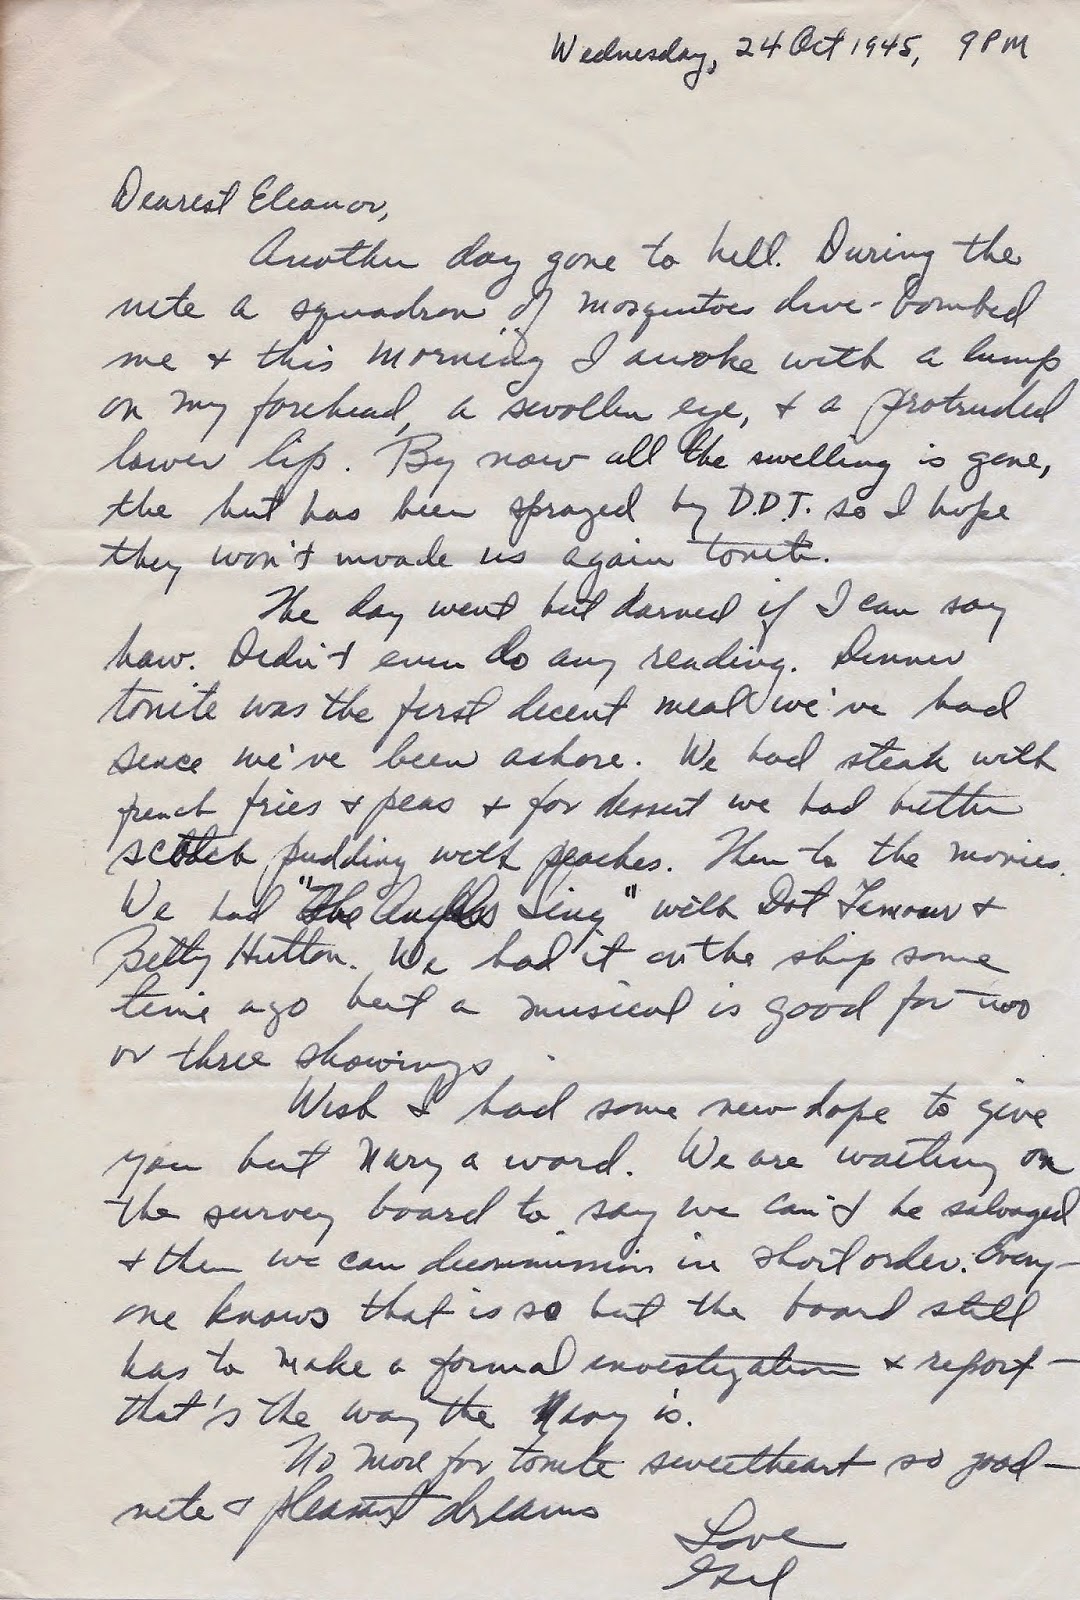 Wednesday, 24 Oct 1945, 9PM
Dearest Eleanor,
Another day gone to hell. During the
nite a squadron of mosquitoes dive-bombed
me & this morning I awoke with a lump
on my forehead, a swollen eye, & a protruded
lower lip. By now all the swelling is gone,
the hut has been sprayed by D.D.T. so I hope
they won't invade us again tonite.
The day went but darned if I can say
how. Didn't even do any reading. Dinner
tonite was the first decent meal we've had
since we've been ashore. We had steak with
french fries & peas & for dessert we had butter
scotch pudding with peaches. Then to the movies.
We had "The Angles Sing" with Dot Lamour &
Betty Hutton. We had it on the ship some
time ago but a musical is good for two
or three showings.
Wish I had some new dope to give
you but nary a word. We are waiting on
the survey board to say we can't be salvaged
& then we can decommission in short order. Every-
one knows that is so but the board still
has to make a formal investigation & report -
that's the way the Navy is.
No more for tonite sweetheart so good-
nite & pleasant dreams
Love
Gil